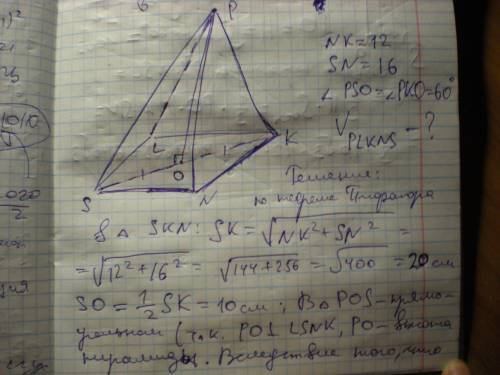 P
NK=12
SN=16
∠PSO=∠PKO=60°
V PLKNS - ?
L
K
O
S
N
Решение:
по теореме Пифагора
В △ SKN: SK=√(NK²+SN²) =
=√(12²+16²) = √(144+256) = √400 = 20 см
SO = 1/2 SK = 10 см; В △ POS - прямо-
угольном (т.к. PO⊥LSNK, PO - высота
пирамиды). Вследствие того, что